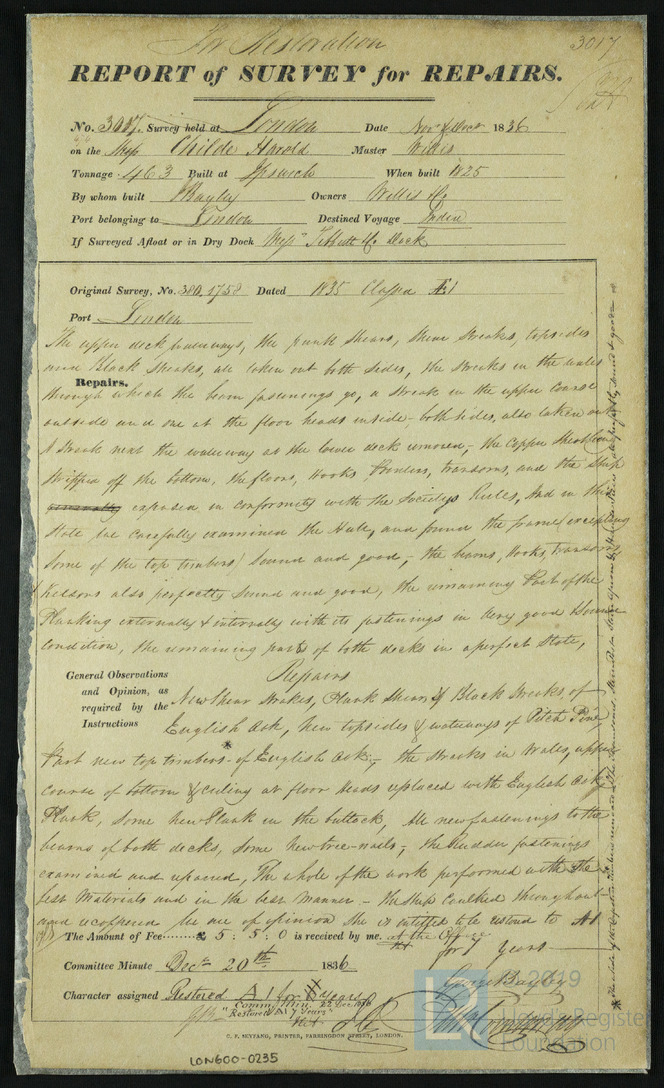 For Restoration
3017
REPORT of SURVEY for REPAIRS.
No. 3017. Survey held at London Date Novr & Decr 1836
on the Ship Childe Harold Master Willis
Tonnage 463 Built at Ipswich When built 1825
By whom built Bayley Owners Willis & Co.
Port belonging to London Destined Voyage India
If Surveyed Afloat or in Dry Dock Messrs Tibbutt & Co. Dock
Original Survey, No. 380, 1758 Dated 1835 Classed A1
Port London
Repairs.
The upper deck waterways, the plank shears, shear streaks, topsides
and Black streaks, all taken out both sides, the streaks in the wales
through which the beam fastenings go, a streak in the upper course
outside and one at the floor heads inside - both sides, also taken out
A streak next the waterway at the lower deck removed, the Copper sheathing
stripped off the bottom, the floors, Hooks Pointers, transoms, and the Ship
exposed in conformity with the Society's Rules, And in this
state we carefully examined the Hull, and found the frame (excepting
some of the top timbers) sound and good, the beams, Hooks, Transoms,
Kelsons also perfectly sound and good, the remaining Part of the
Planking externally & internally with its fastenings in very good
condition, the remaining parts of both decks in a perfect state,
Repairs
General Observations
and Opinion, as
required by the
Instructions
New Shear Strakes, Plank Shears & Black Streaks of
English Oak, New topsides & waterways of Pitch Pine
Part new top timbers of English Oak, the streaks in Wales, upper
course of bottom & ceiling at floor heads replaced with English Oak
Plank, some new Plank in the buttock, All new fastenings to the
beams of both decks, some new tree-nails, the Rudder fastenings
examined and repaired, The whole of the work performed with the
best Materials and in the best Manner - the ship caulked throughout
and recoppered We are of opinion she is intitled to be restored to A1
for 7 Years
The Amount of Fee £ 5 : 5 : 0 is received by me. at the Office
Committee Minute Decr 20th 1836
George Bayley
Character assigned Restored A 1 for years
Comm. Min. 22 Dec 1836
"Restored A1 7 Years"
C. F. SEYFANG, PRINTER, FARRINGDON STREET, LONDON.
LON600-0235
© 2019
LR
Lloyd's Register
Foundation